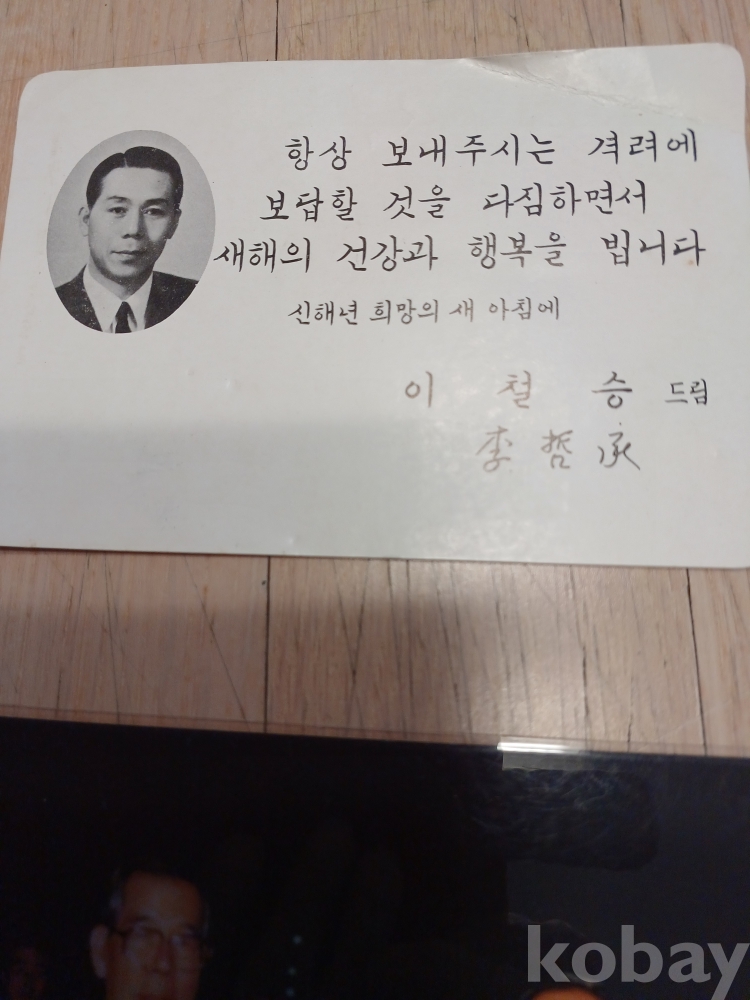 항상 보내주시는 격려에
보답할 것을 다짐하면서
새해의 건강과 행복을 빕니다
신해년 희망의 새 아침에
이 철 승 드림
李 哲 承
kobay